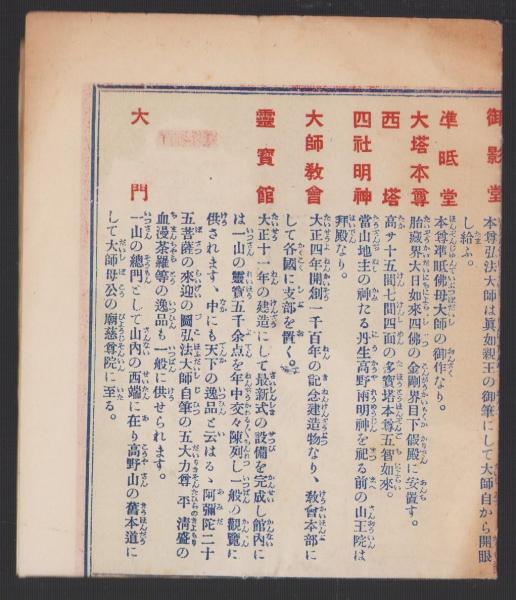 御影堂
本尊弘法大師は眞如親王の御筆にして大師自から開眼
し給ふ。
凖胝堂
本尊凖胝佛母大師の御作なり。
大塔本尊
胎藏界大日如來四佛の金剛界目下假殿に安置す。
西塔
高サ十五間七間四面の多寶塔本尊五智如來。
四社明神
當山地主の神たる丹生高野兩明神を祀る前の山王院は
拜殿なり。
大師敎會
大正四年開創一千百年の記念建造物なり、敎會本部に
して各國に支部を置く。
靈寶館
大正十一年の建造にして最新式の設備を完成し館內に
は一山の靈寶五千余点を年中交々陳列し一般の觀覽に
供されます、中にも天下の逸品と云はるゝ阿彌陀二十
五菩薩の來迎の圖弘法大師自筆の五大力尊平淸盛の
血漫荼羅等の逸品も一般に供せられます。
大門
一山の總門として山內の西端に在り高野山の舊本道に
して大師母公の廟慈尊院に至る。